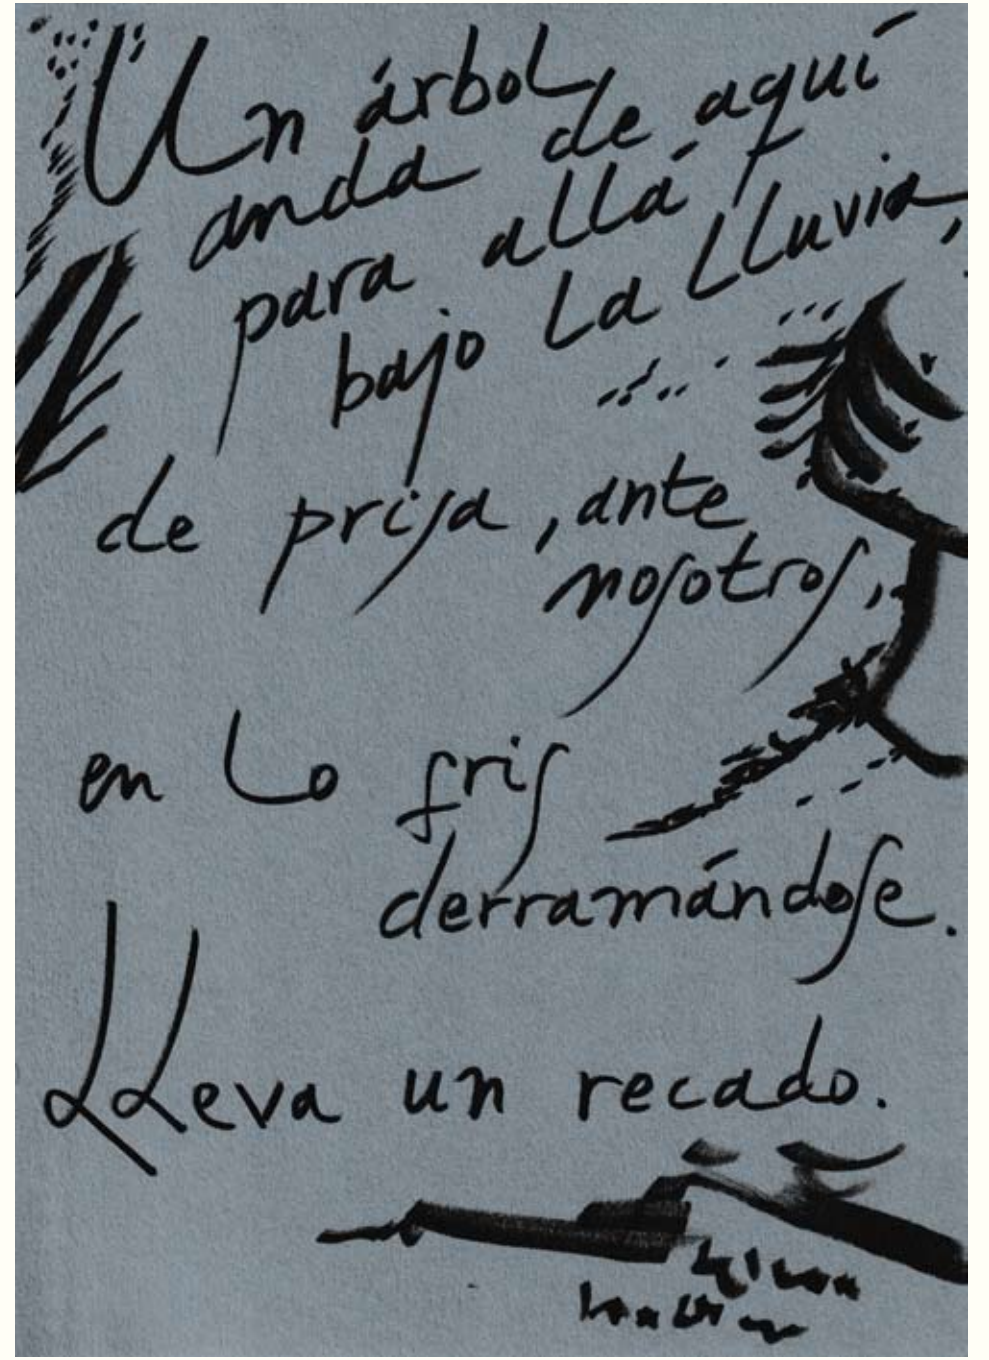 Un árbol
anda de aquí
para allá
bajo la lluvia,
de prisa, ante
nosotros,
en lo gris
derramándose.
Lleva un recado.